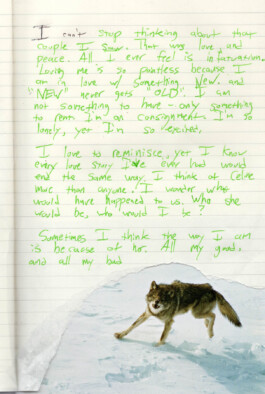 I can't stop thinking about that
couple I saw. That was love, and
peace. All I ever feel is infatuation.
Loving me is so pointless because I
am in love w/ something New. and
"NEW" never gets "OLD". I am
not something to have - only something
to rent. I'm on consignment. I'm so
lonely, yet I'm so rejected.
I love to reminisce, yet I know
every love story I've ever had would
end the same way. I think of Celine
more than anyone. I wonder what
would have happened to us. Who she
would be, who would I be?
Sometimes I think the way I am
is because of her. All my good,
and all my bad